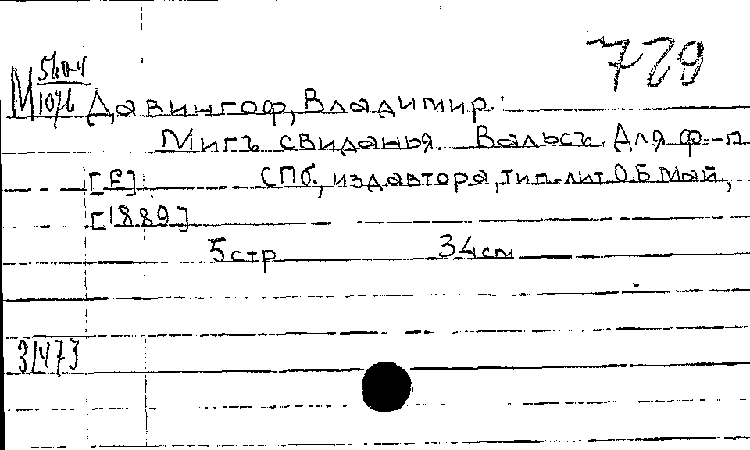 729
М 560-4
1076 Давингоф, Владимир.
Мигъ свиданья. Вальсъ. Для ф-п
[E] СПб, изд автора, тип-лит. О.Б. Май,
[1889]
5 стр 34 см
31473